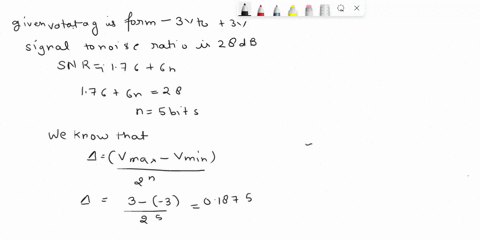 given votatag is form - 3V to + 3V
signal to noise ratio is 28 dB
SNR = 1.76 + 6n
1.76 + 6n = 28
n = 5 bits
We know that
Δ = (Vmax - Vmin)
2^n
Δ = 3 - (-3) = 0.1875
2^5